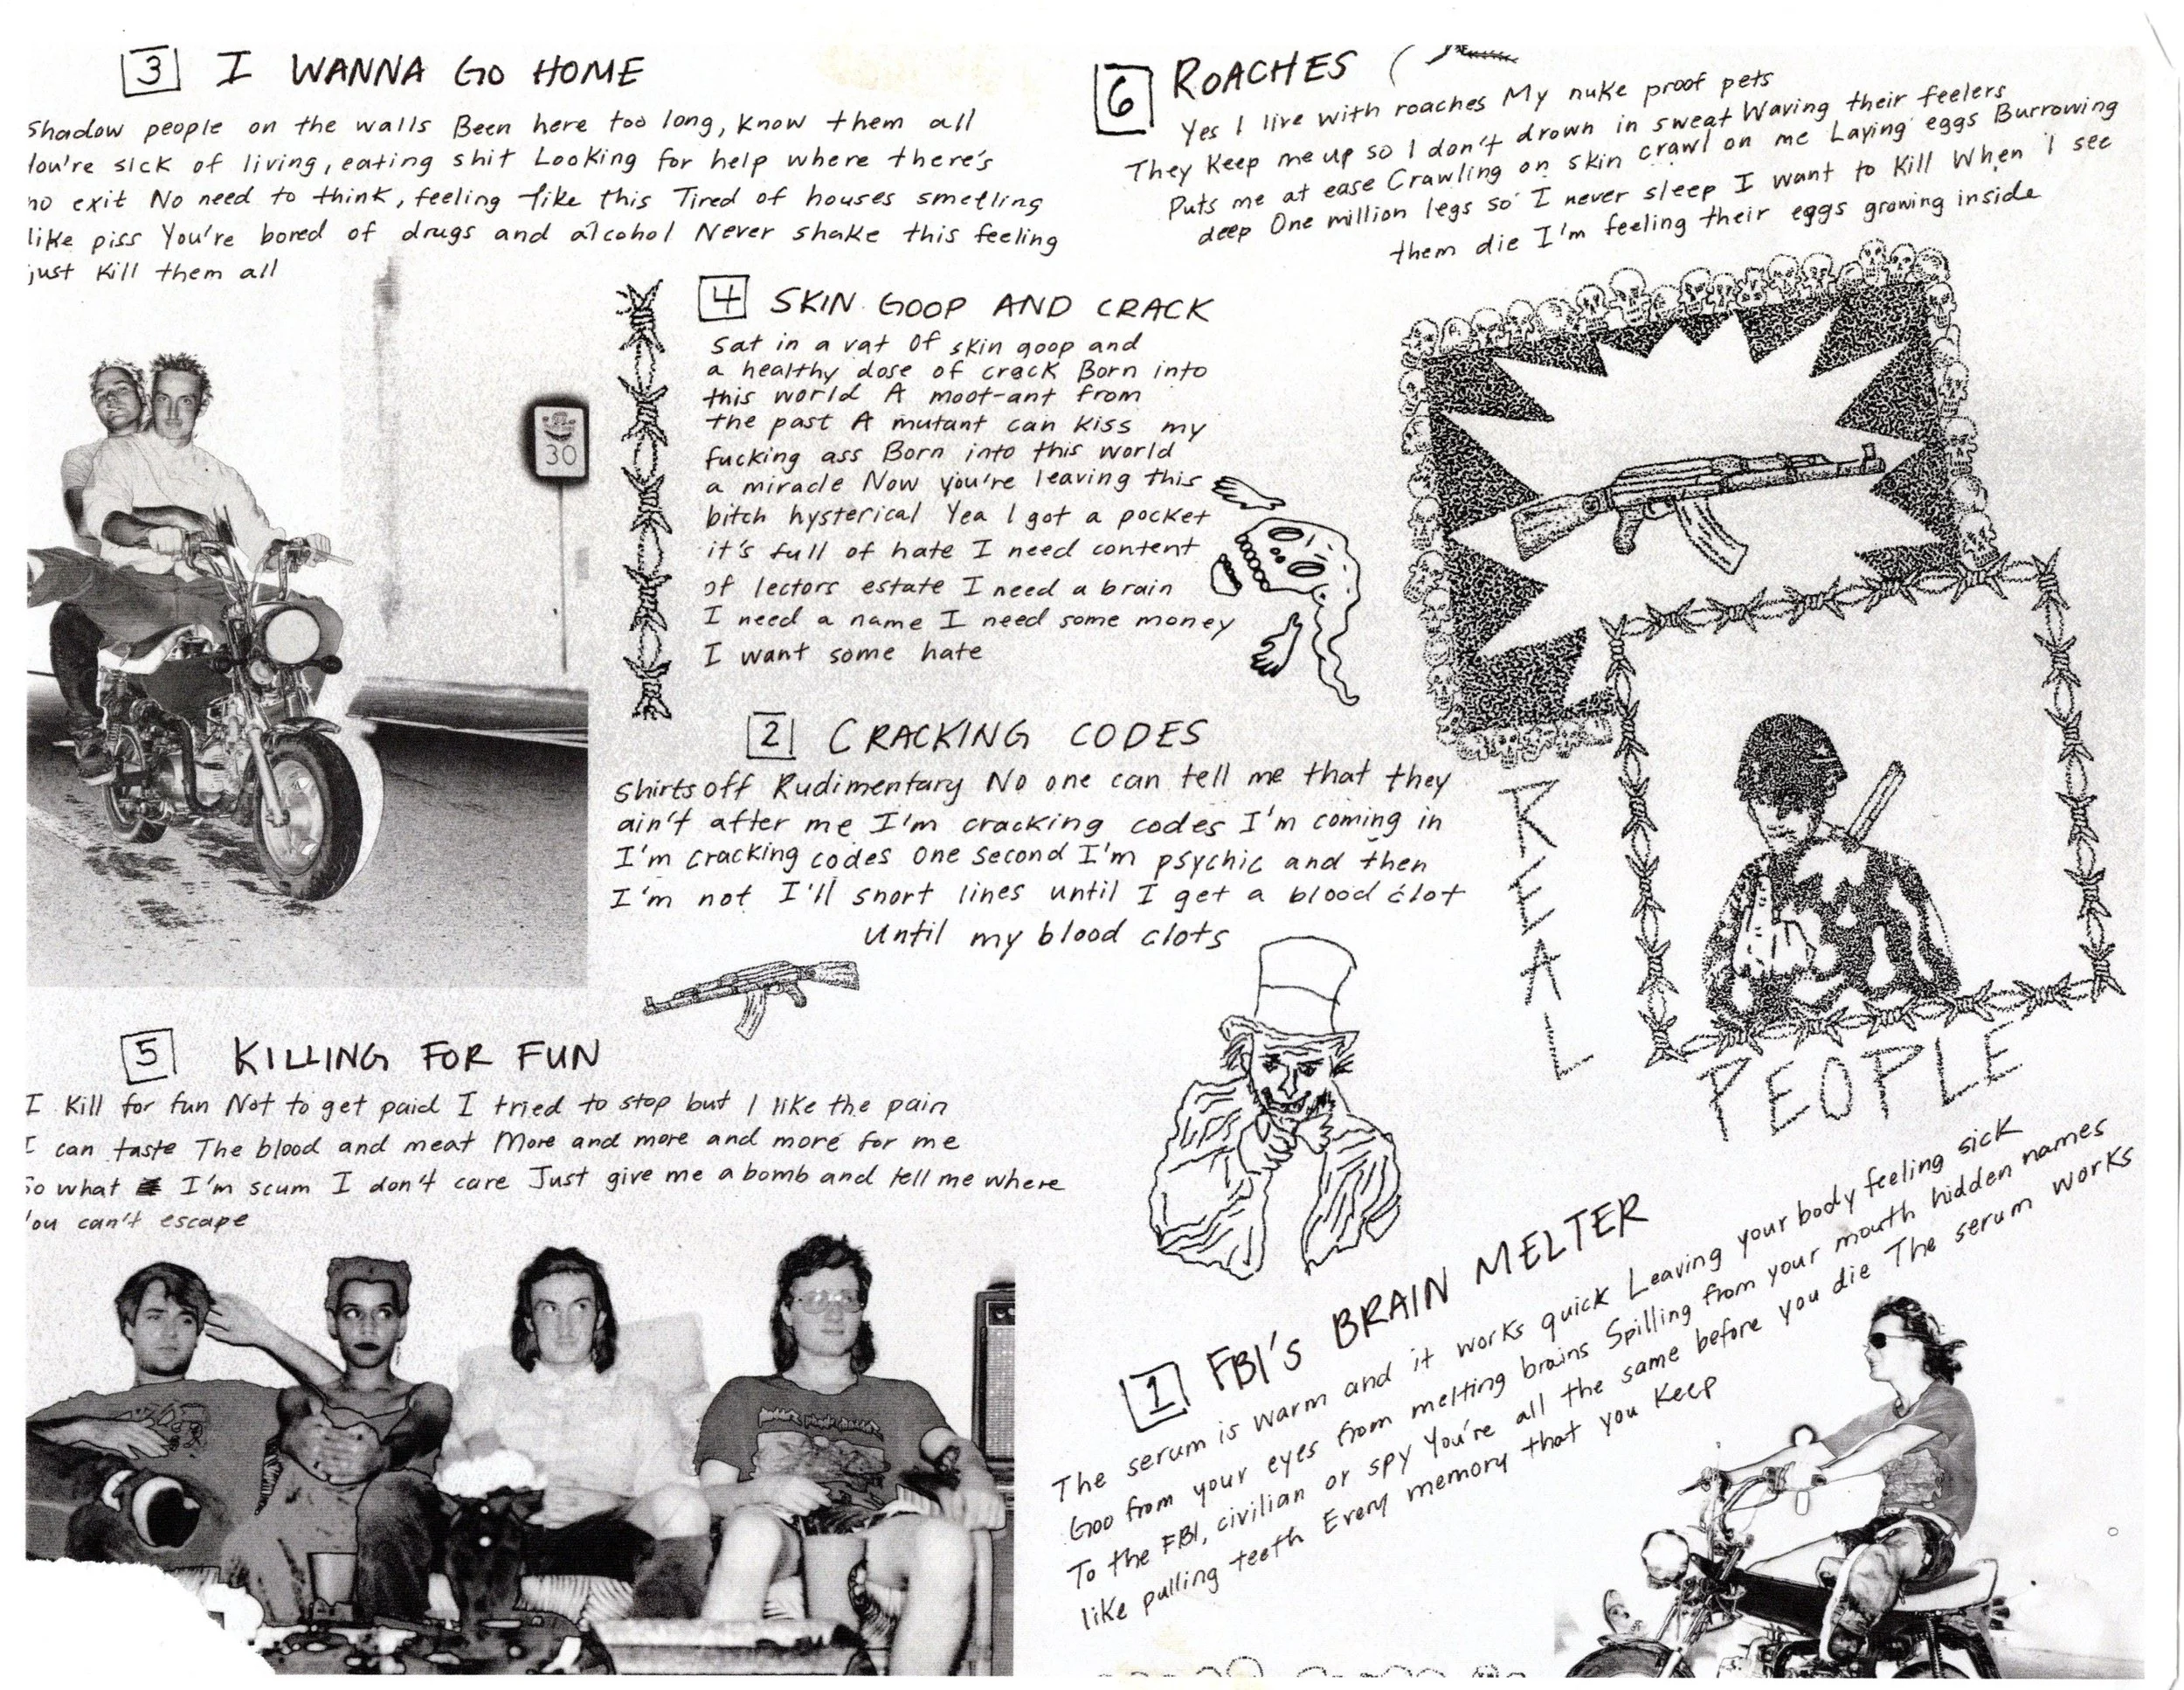 3 I WANNA GO HOME
Shadow people on the walls Been here too long, know them all
You're sick of living, eating shit Looking for help where there's
no exit No need to think, feeling like this Tired of houses smelling
like piss You're bored of drugs and alcohol Never shake this feeling
just kill them all
30
4 SKIN GOOP AND CRACK
Sat in a vat of skin goop and
a healthy dose of crack Born into
this world A moot-ant from
the past A mutant can kiss my
fucking ass Born into this world
a miracle Now you're leaving this
bitch hysterical Yea I got a pocket
it's full of hate I need content
of lectors estate I need a brain
I need a name I need some money
I want some hate
2 CRACKING CODES
Shirts off Rudimentary No one can tell me that they
ain't after me I'm cracking codes I'm coming in
I'm cracking codes One second I'm psychic and then
I'm not I'll snort lines until I get a blood clot
Until my blood clots
5 KILLING FOR FUN
I kill for fun Not to get paid I tried to stop but I like the pain
I can taste The blood and meat More and more and more for me
So what I'm scum I don't care Just give me a bomb and tell me where
You can't escape
6 ROACHES
Yes I live with roaches My nuke proof pets
They keep me up so I don't drown in sweat Waving their feelers
Puts me at ease Crawling on skin crawl on me Laying eggs Burrowing
deep One million legs so I never sleep I want to kill When I see
them die I'm feeling their eggs growing inside
REAL
PEOPLE
1 FBI'S BRAIN MELTER
The serum is warm and it works quick Leaving your body feeling sick
Goo from your eyes from melting brains Spilling from your mouth hidden names
To the FBI, civilian or spy You're all the same before you die The serum works
like pulling teeth Every memory that you keep